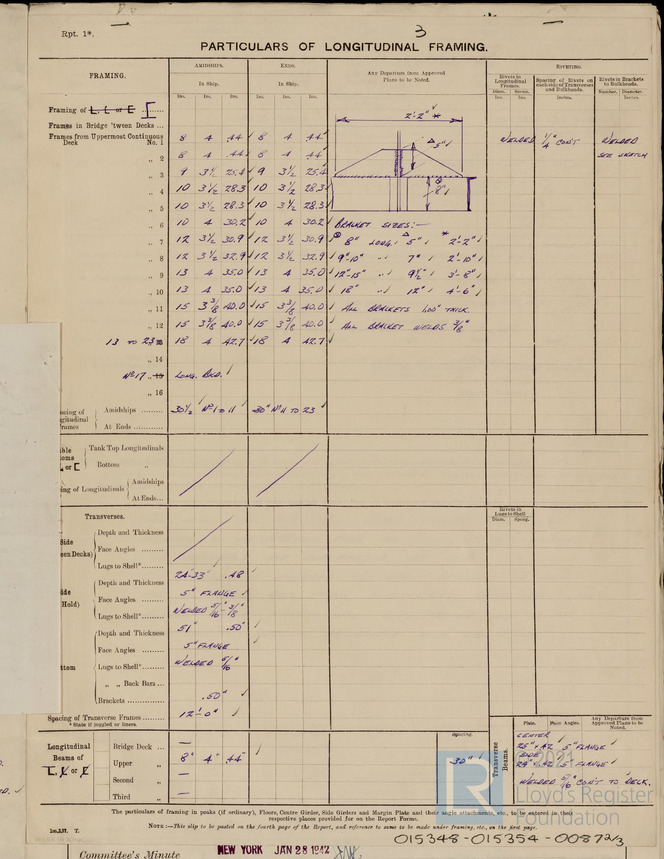 Rpt. 1*.
3
PARTICULARS OF LONGITUDINAL FRAMING.
FRAMING.
AMIDSHIPS.
ENDS.
In Ship.
In Ship.
Any Departure from Approved Plans to be Noted.
RIVETING.
Rivets in Longitudinal Frames.
Spacing of Rivets on each side of Transverses and Bulkheads.
Rivets in Brackets to Bulkheads.
Ins. Ins. Ins. Ins. Ins. Ins.
Diam. Number. Diameter.
Framing of L, L or E [
2'-2" *
Frames in Bridge 'tween Decks ...
Frames from Uppermost Continuous Deck No. 1 8 4 .44 8 4 .44 WELDED 1/4" CON'T WELDED
„ 2 8 4 .44 8 4 .44 SEE SKETCH
„ 3 9 3½ 25.4 9 3½ 25.4
„ 4 10 3½ 28.3 10 3½ 28.3
„ 5 10 3½ 28.3 10 3½ 28.3
„ 6 10 4 30.2 10 4 30.2 BRACKET SIZES:—
„ 7 12 3½ 30.9 12 3½ 30.9 8" LONG. 5" 2'-2"
„ 8 12 3½ 32.9 12 3½ 32.9 9"-10" „ 7" 2'-10"
„ 9 13 4 35.0 13 4 35.0 12"-15" „ 9½" 3'-8"
„ 10 13 4 35.0 13 4 35.0 18" „ 12" 4'-6"
„ 11 15 3⅜ 40.0 15 3⅜ 40.0 ALL BRACKETS 1.00" THICK.
„ 12 15 3⅜ 40.0 15 3⅜ 40.0 ALL BRACKET WELDS 3/8"
13 TO 23 18 4 42.7 18 4 42.7
„ 14
No 17 „ 15 LONG. BKD.
„ 16
Amidships ......... 30½ No 1 TO 11 30" No 11 TO 23
At Ends ......
Tank Top Longitudinals
Bottom „
ing of Longitudinals
Amidships
At Ends...
Transverses.
Rivets in Lugs to Shell
Diam. Spacing.
Side
Depth and Thickness
Face Angles .........
Lugs to Shell*.......
Depth and Thickness 24-33" .48
Hold)
Face Angles ......... 5" FLANGE
Lugs to Shell*....... WELDED 5/16"-3/8"
Depth and Thickness 51" .50"
Face Angles ......... 5" FLANGE
Lugs to Shell*....... WELDED 5/16
„ „ Back Bars ...
Brackets ............ .50"
Spacing of Transverse Frames ....... 12'-0"
*State if joggled or liners.
Longitudinal Beams of L, L or E
Bridge Deck ... —
Upper „ 8" 4" .44"
Second „ —
Third „ —
Spacing.
30"
Transverse Beams.
Plate. Face Angles. Any Departure from Approved Plans to be Noted.
CENTER
5" FLANGE
SIDE
5" FLANGE
WELDED 5/16 CON'T TO DECK.
© 2021
Lloyd's Register
Foundation
The particulars of framing in peaks (if ordinary), Floors, Centre Girder, Side Girders and Margin Plate and their angle attachments, etc., to be entered in their respective places provided for on the Report Forms.
NOTE :—This slip to be pasted on the fourth page of the Report, and reference to same to be made under framing, etc., on the first page.
015348-015354-0087 2/3
Committee's Minute
NEW YORK JAN 28 1942